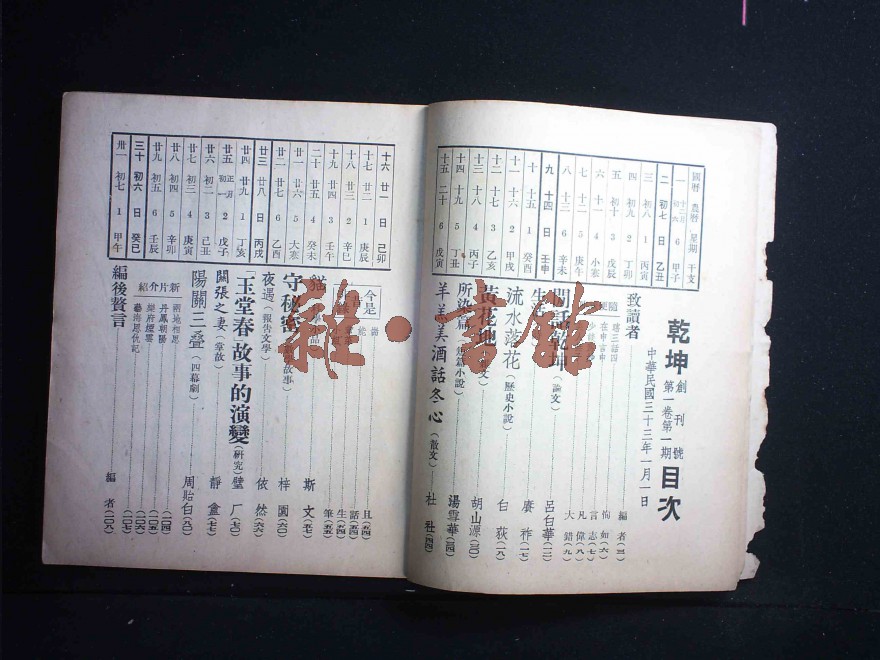 乾坤 創刊號 第一卷第一期 目次
中華民國三十三年一月一日
致讀者 編者(三)
隨便
大錯(九)
閒話乾坤(論文) 呂白華(一二)
流水落花(歷史小說) 白荻(一八)
黃花地 胡山源
短篇小說) 湯雪華(三四)
羊羔美酒話冬心(散文) 杜社(四四)
國曆 農曆 星期 干支
一 6 甲子
二 初七 日 乙丑
三 初八 1 丙寅
四 初九 2 丁卯
五 初十 3 戊辰
六 十一 4 小寒
七 十二 5 庚午
八 十三 6 辛未
九 十四 日 壬申
十 十五 1 癸酉
十一 十六 2 甲戌
十二 十七 3 乙亥
十三 十八 4 丙子
十四 十九 5 丁丑
十五 二十 6 戊寅
十六 廿一 日 己卯
十七 廿二 1 庚辰
十八 廿三 2 辛巳
十九 廿四 3 壬午
二十 廿五 4 癸未
廿一 廿六 5 大寒
廿二 廿七 6 乙酉
廿三 廿八 日 丙戌
廿四 廿九 1 丁亥
廿五 正月初一 2 戊子
廿六 初二 3 己丑
廿七 初三 4 庚寅
廿八 初四 5 辛卯
廿九 初五 6 壬辰
三十 初六 日 癸巳
卅一 初七 1 甲午
今是昔
貓 斯文(五七)
守秘密 故事) 梓園(六四)
夜遇(報告文學) 依然(六六)
「玉堂春」故事的演變(研究) 璧厂(七〇)
關張之妻(掌故) 靜盦(七七)
陽關三疊(四幕劇) 周貽白(八〇)
新片介紹
兩地相思
丹鳳朝陽
樂府煙雲
藝海恩仇記
編後贅言 編者(一〇八)
雜·書館